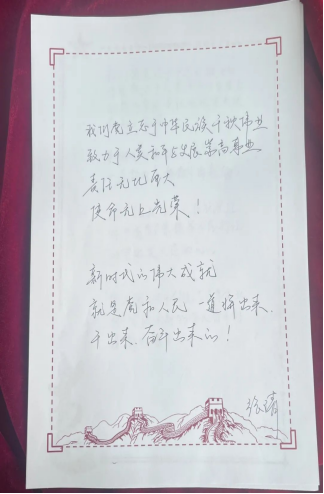 我们党立志于中华民族千秋伟业
致力于人类和平与发展崇高事业
责任无比重大
使命无上光荣！
新时代的伟大成就
就是党和人民一道拼出来、
干出来、奋斗出来的！